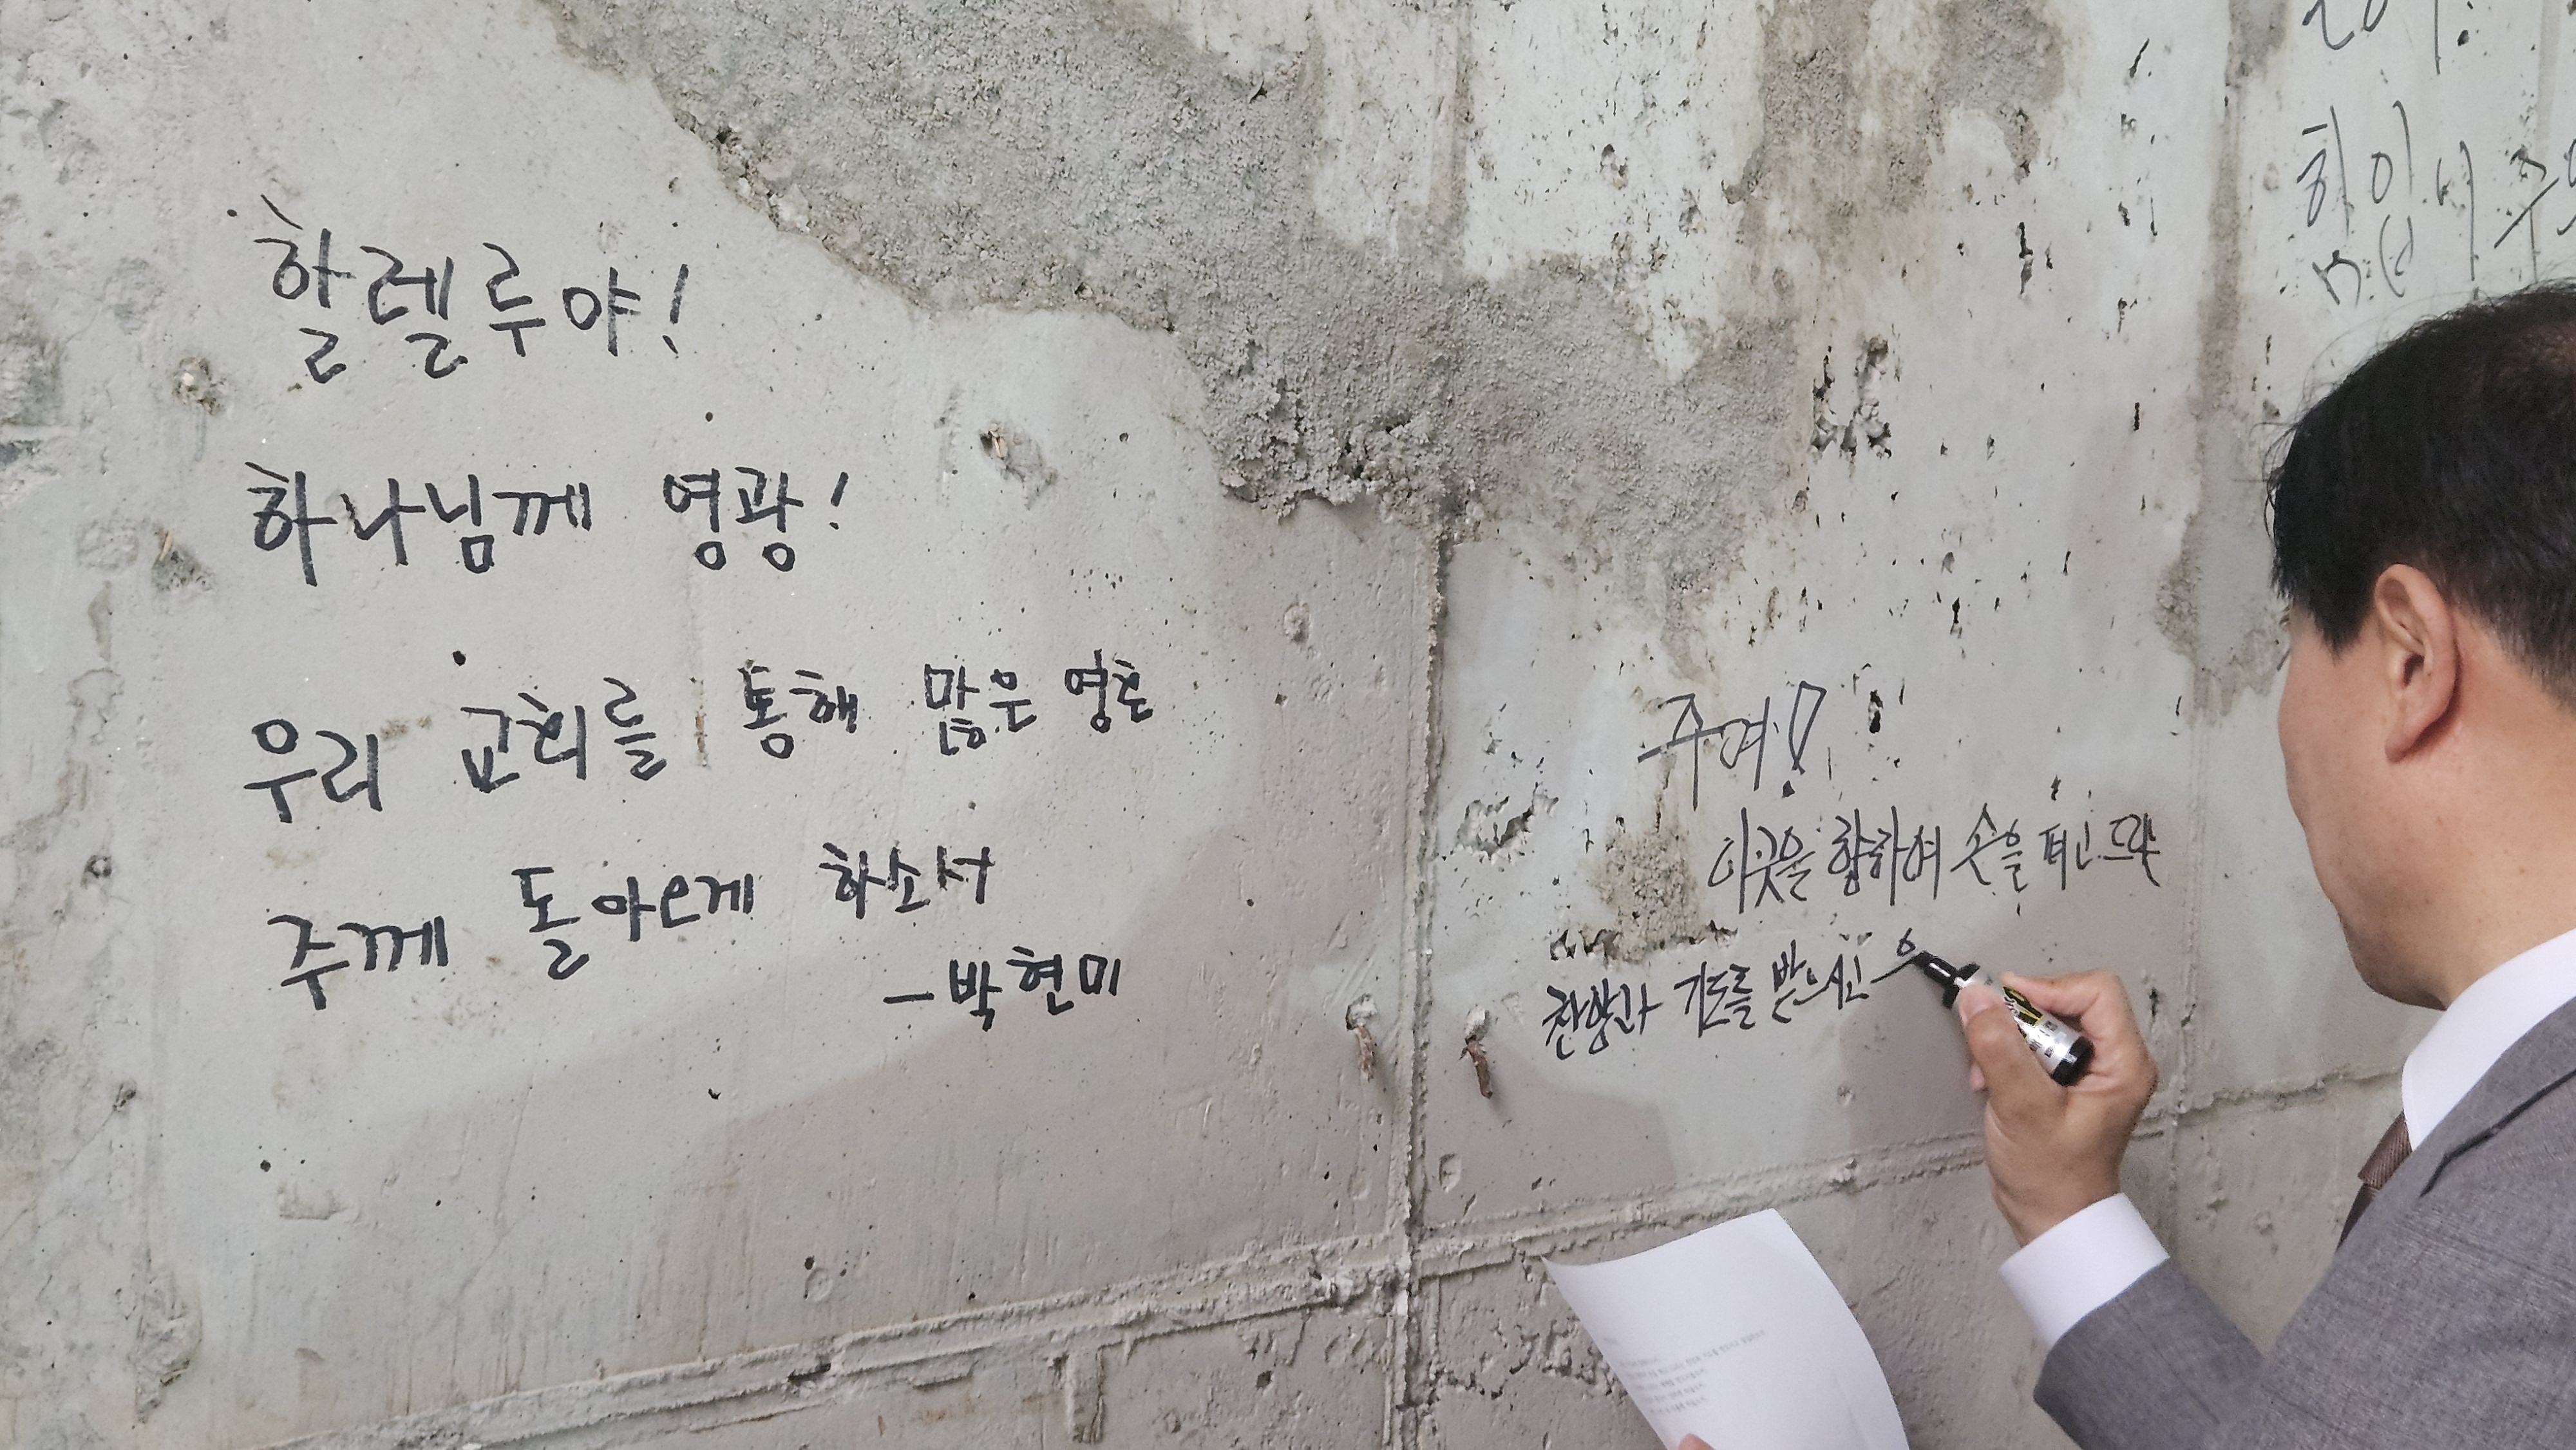 할렐루야!
하나님께 영광!
우리 교회를 통해 많은 영혼
주께 돌아오게 하소서
- 박현미
주여!
이곳을 향하여 손을 펴고 드린
찬양과 기도를 받으시고